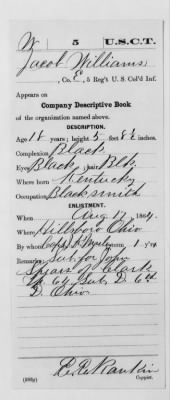 W 5 U.S.C.T.
Jacob Williams
, Co. E, 5 Reg't U. S. Col'd Inf.
Appears on
Company Descriptive Book
of the organization named above.
DESCRIPTION.
Age 18 years; height 5 feet 8½ inches.
Complexion Black
Eyes Black; hair Blk.
Where born Kentucky
Occupation Blacksmith
ENLISTMENT.
When Aug 17, 1864.
Where Hillsboro Ohio
By whom Capt term 1 y'rs
Remarks: Sub. for John
Spears of Clark
Tp 6th Sub. D. 6th
D. Ohio
Rankin
(383g) Copyist.